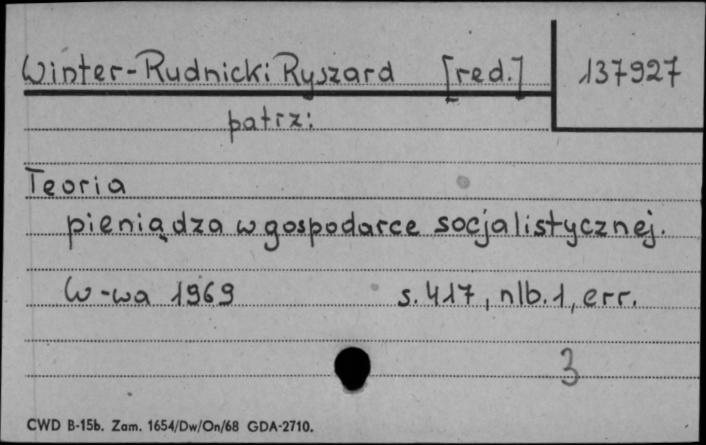 Winter-Rudnicki Ryszard [red.] 137927
patrz:
Teoria
pieniądza w gospodarce socjalistycznej.
W-wa 1969 s. 417, nlb. 1, err.
3
CWD B-15b. Zam. 1654/Dw/On/68 GDA-2710.